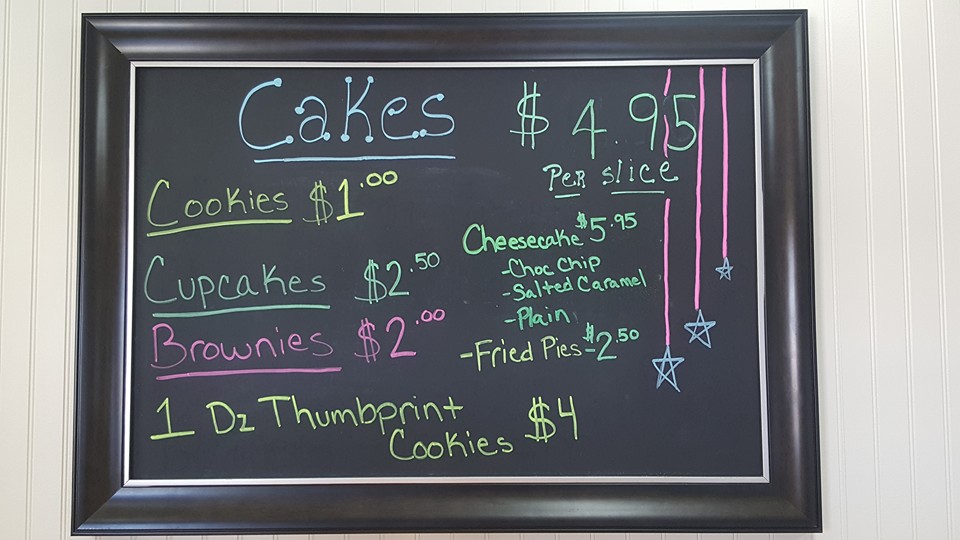 Cakes $4.95
Per slice
Cookies $1.00
Cupcakes $2.50
Brownies $2.00
Cheesecake $5.95
-Choc Chip
-Salted Caramel
-Plain
-Fried Pies-$2.50
1 Dz Thumbprint
Cookies $4